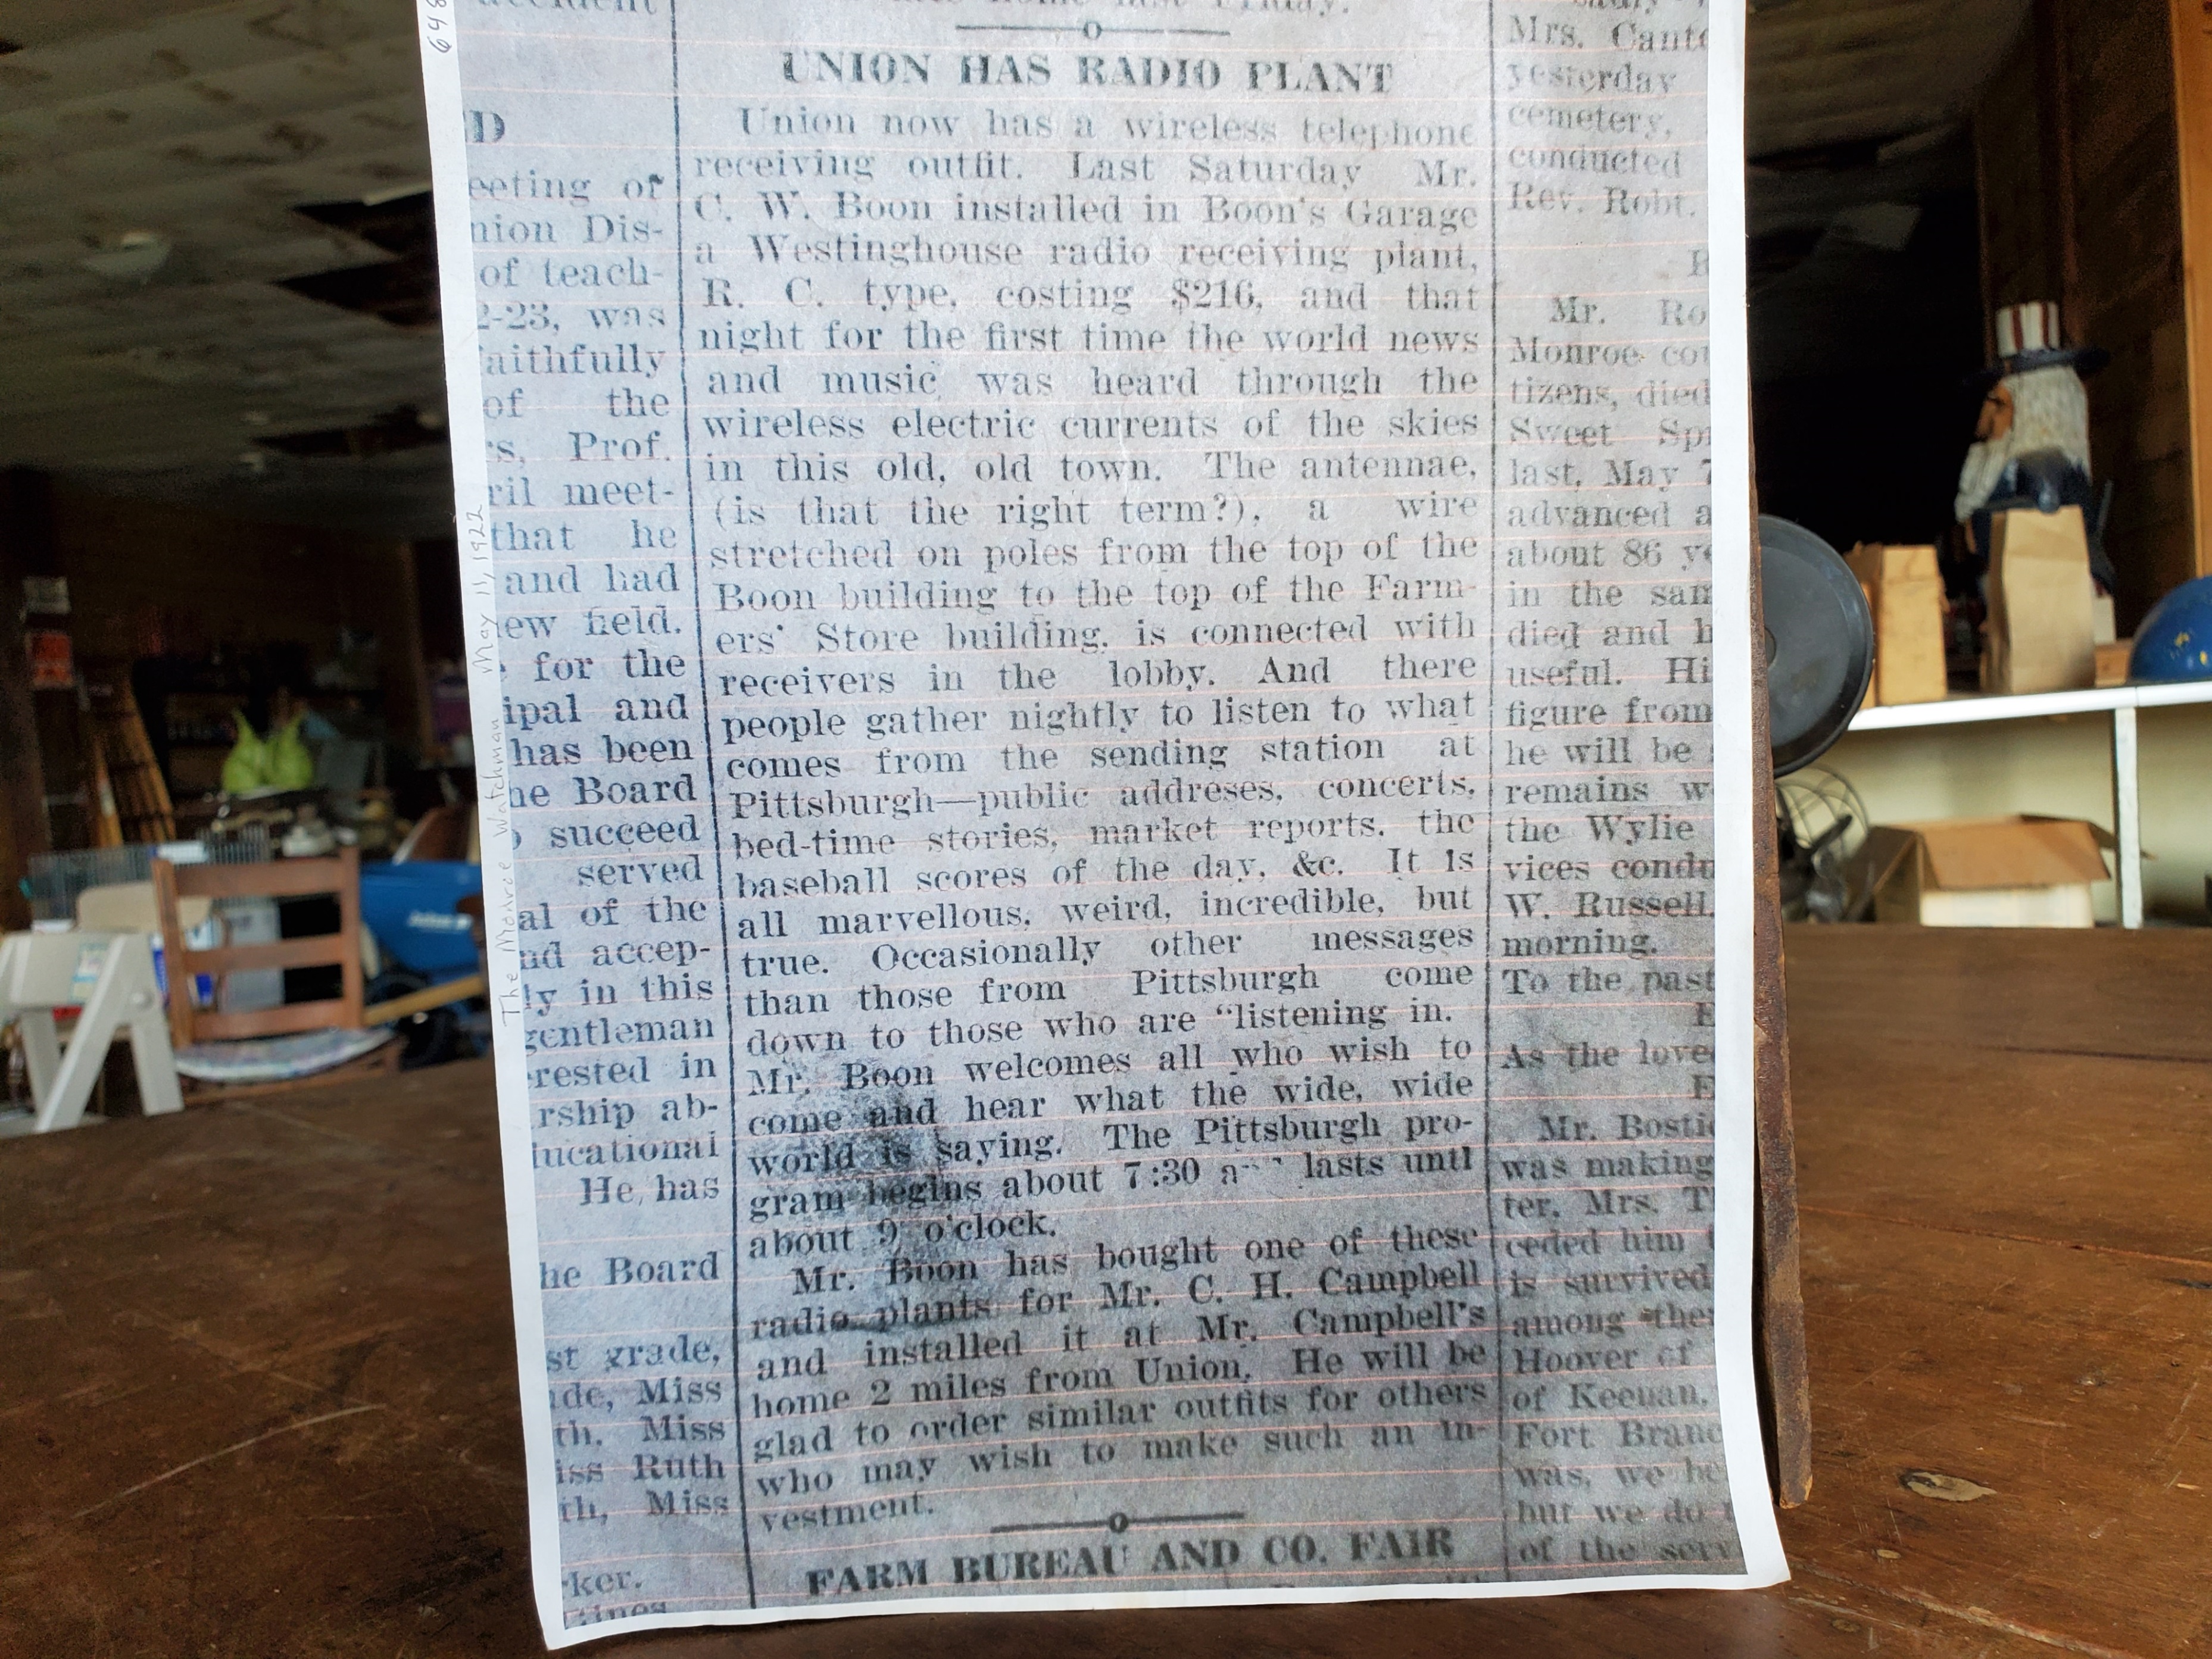 648
The Monroe Watchman May 11, 1922
D
eeting of
nion Dis-
of teach-
2-23, was
faithfully
of the
s, Prof.
ril meet-
that he
and had
ew field.
for the
ipal and
has been
he Board
succeed
served
al of the
nd accep-
ly in this
gentleman
rested in
rship ab-
ucational
He has
he Board
st grade,
de, Miss
th, Miss
iss Ruth
th, Miss
ker.
UNION HAS RADIO PLANT
Union now has a wireless telephone
receiving outfit. Last Saturday Mr.
C. W. Boon installed in Boon's Garage
a Westinghouse radio receiving plant,
R. C. type, costing $216, and that
night for the first time the world news
and music was heard through the
wireless electric currents of the skies
in this old, old town. The antennae,
(is that the right term?), a wire
stretched on poles from the top of the
Boon building to the top of the Farm-
ers' Store building, is connected with
receivers in the lobby. And there
people gather nightly to listen to what
comes from the sending station at
Pittsburgh—public addreses, concerts,
bed-time stories, market reports, the
baseball scores of the day, &c. It is
all marvellous, weird, incredible, but
true. Occasionally other messages
than those from Pittsburgh come
down to those who are "listening in.
Mr. Boon welcomes all who wish to
come and hear what the wide, wide
world is saying. The Pittsburgh pro-
gram begins about 7:30 a lasts until
about 9 o'clock.
Mr. Boon has bought one of these
radio plants for Mr. C. H. Campbell
and installed it at Mr. Campbell's
home 2 miles from Union. He will be
glad to order similar outfits for others
who may wish to make such an in-
vestment.
FARM BUREAU AND CO. FAIR
Mrs. Cant
yesterday
cemetery,
conducted
Rev. Robt.
Mr. Ro
Monroe co
tizens, died
Sweet Sp
last, May 7
advanced a
about 86 y
in the sam
died and h
useful. Hi
figure from
he will be
remains w
the Wylie
vices condu
W. Russell
morning.
To the past
E
As the love
E
Mr. Bosti
was making
ter, Mrs. T
ceded him
is survived
among the
Hoover of
of Keenan,
Fort Branc
was, we he
but we do
of the serv